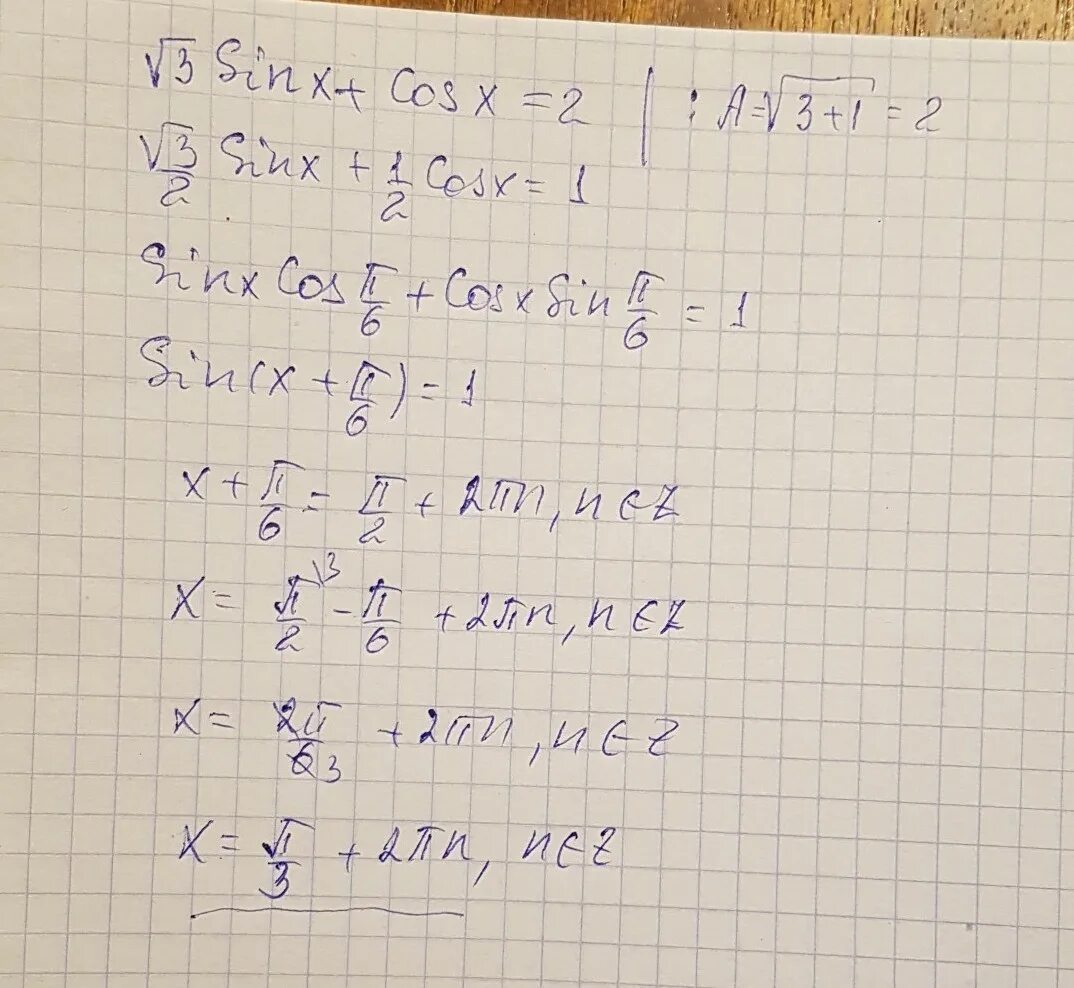 √3 Sinx + Cosx = 2 | : A=√(3+1) = 2
√3/2 Sinx + 1/2 Cosx = 1
Sinx Cos π/6 + Cosx Sin π/6 = 1
Sin(x + π/6) = 1
x + π/6 = π/2 + 2πn, n∈Z
x = π/2 \3 - π/6 + 2πn, n∈Z
x = 2π/6 3 + 2πn, n∈Z
x = π/3 + 2πn, n∈Z